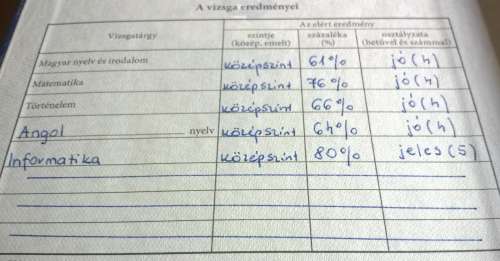 A vizsga eredményei
Az elért eredmény
Vizsgatárgy szintje (közép, emelt) százaléka (%) osztályzata (betűvel és számmal)
Magyar nyelv és irodalom középszint 61% jó (4)
Matematika középszint 76% jó (4)
Történelem középszint 66% jó (4)
Angol nyelv középszint 64% jó (4)
Informatika középszint 80% jeles (5)